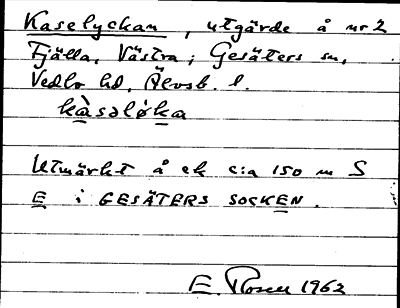 Kaselyckan, utgärde å nr 2
Fjälla, Västra; Gesäters sn,
Vedbo hd, Älvsb. l.
kàsəlø̀ka
Utmärkt å ek c:a 150 m S
E i GESÄTERS SOCKEN.
E. Rosell 1962